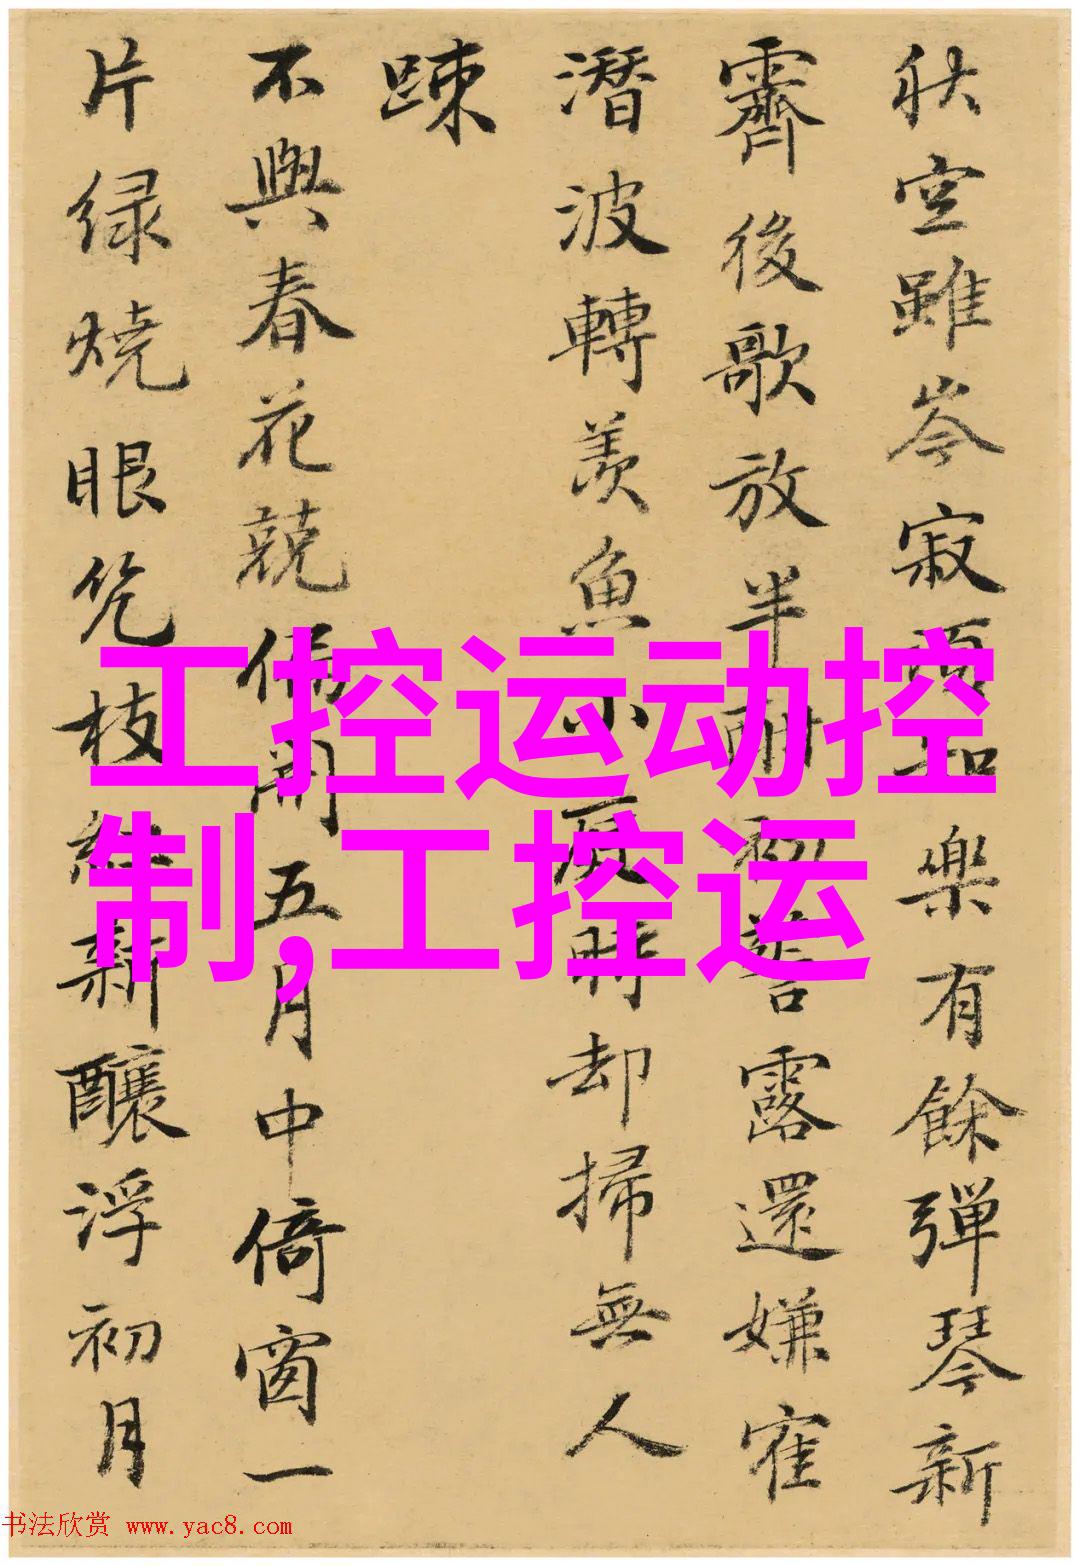 秋空雖岑寂須知樂有餘彈琴新
霽後歌放半初警露還嫌寉
潛波轉羨魚小時却掃無人
踈
不與春花競偏開五月中倚窗一
片绿燒眼枝紅新釀浮初月
工控运动控
制,工控运
书法欣赏 www.yac8.com